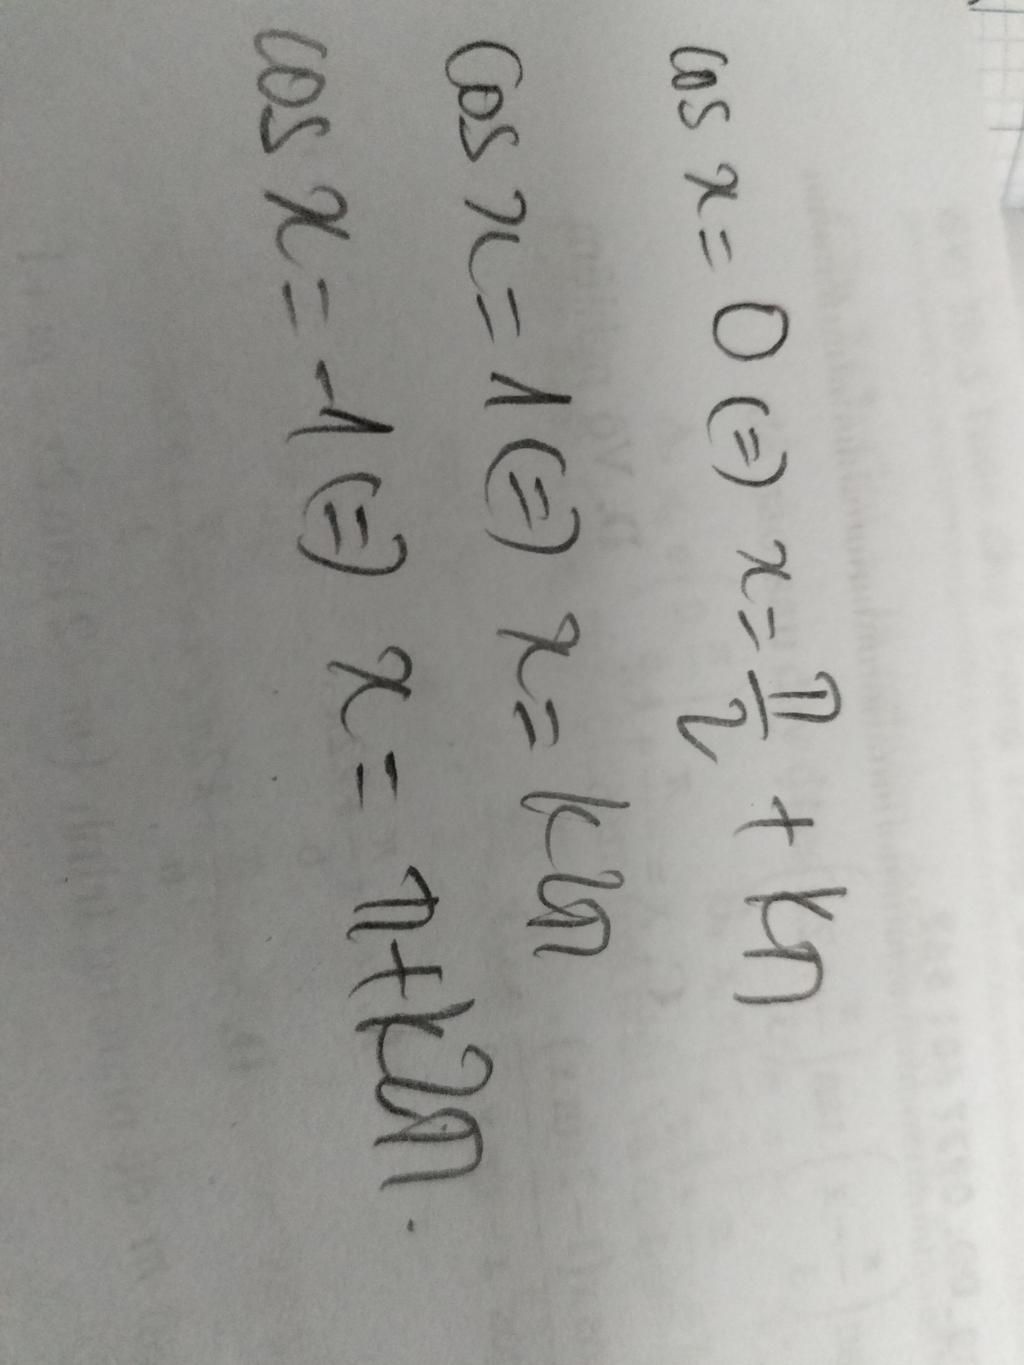 cos x = 0 (=) x = π/2 + kπ
cos x = 1 (=) x = k2π
cos x = -1 (=) x = π + k2π.